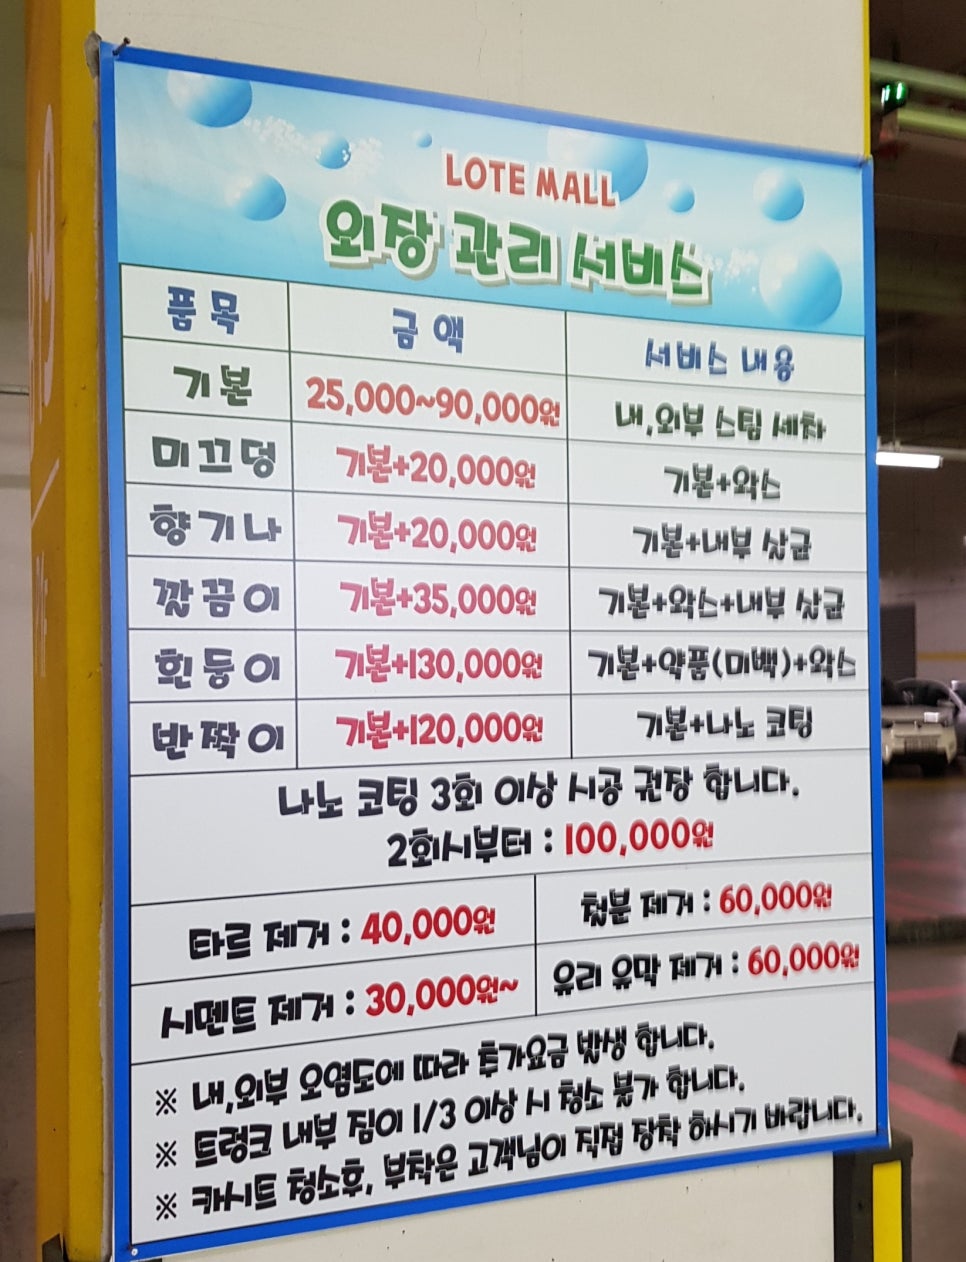 LOTE MALL
외장 관리 서비스
품목 금액 서비스 내용
기본 25,000~90,000원 내,외부 스팀 세차
미끄덩 기본+20,000원 기본+왁스
향기나 기본+20,000원 기본+내부 살균
깔끔이 기본+35,000원 기본+왁스+내부 살균
흰둥이 기본+130,000원 기본+약품(미백)+왁스
반짝이 기본+120,000원 기본+나노 코팅
나노 코팅 3회 이상 시공 권장 합니다.
2회시부터 : 100,000원
타르 제거 : 40,000원 철분 제거 : 60,000원
시멘트 제거 : 30,000원~ 유리 유막 제거 : 60,000원
※ 내,외부 오염도에 따라 추가요금 발생 합니다.
※ 트렁크 내부 짐이 1/3 이상 시 청소 불가 합니다.
※ 카시트 청소후, 부착은 고객님이 직접 장착 하시기 바랍니다.